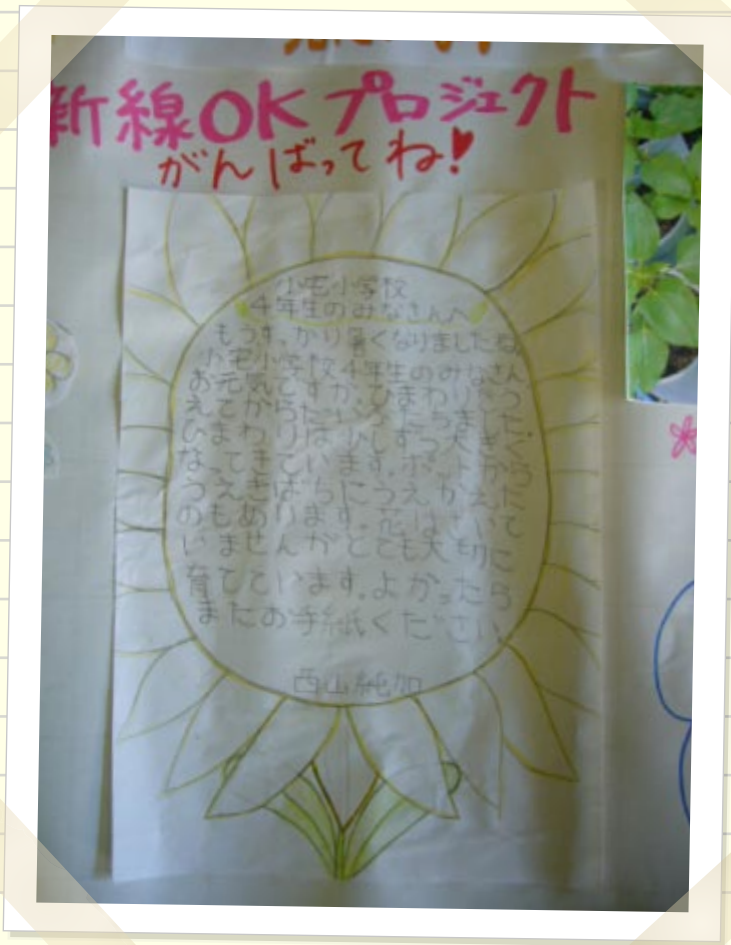 新線OKプロジェクト
がんばってね!
小宅小学校
4年生のみなさんへ
もうすっかり暑くなりましたね。
小宅小学校4年生のみなさん
お元気ですか。ひまわりをう
えてからだいぶたちました。
ひまわりは少しずつ大きく
なってきています。ポットから
うえきばちにうえかえた
のもあります。花はさいて
いませんがとても大切に
育てています。よかったら
またお手紙ください。
西山純加